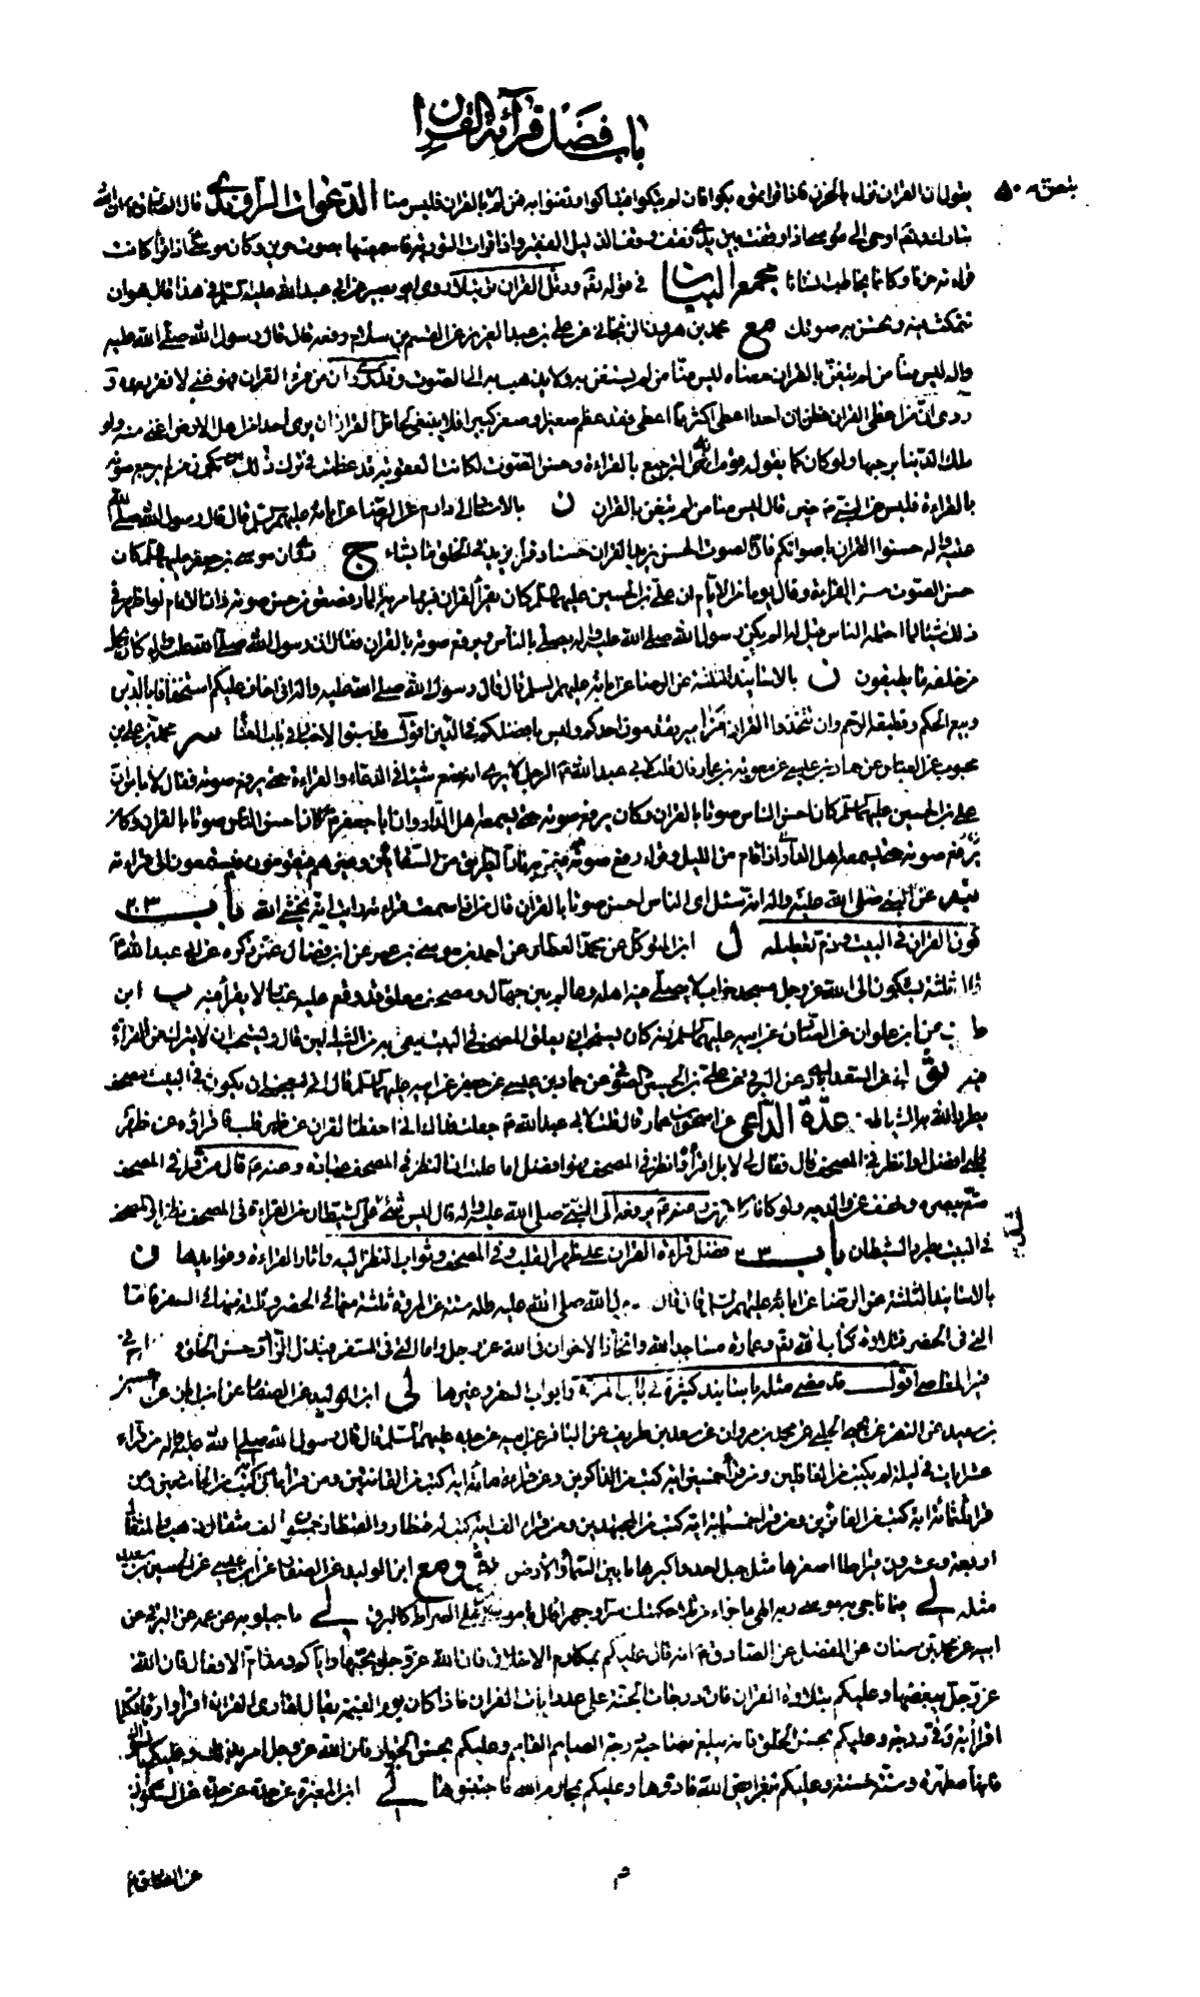 باب فضل قرائة القران
يقول ان القران نزل بالحزن فاذا قرأتموه فابكوا فان لم تبكوا فتباكوا وتغنوا به فمن لم بالقران فليس منا الدعوات الراوندي قال ان الله
تبارك وتعالى اوحى الى موسى اذا وقفت بين يدي فقف وقف الذليل الفقير واذا قرأت التورية فاسمعنيها بصوت حزين وكان موسى اذا قرأ كانت
قرائته حزنا وكانما يخاطب انسانا مجمع البيان في قوله تعالى ورتل القران ترتيلا روى ابو بصير عن ابي عبد الله عليه السلم في هذا قال هو ان
تتمكث فيه وتحسن به صوتك مع محمد بن هرون الزنجاني عن علي بن عبد العزيز عن القسم بن سلام رفعه قال قال رسول الله صلى الله عليه
واله ليس منا من لم يتغن بالقران معناه ليس منا من لم يستغن به ولا يذهب به الى الصوت وقد روى ان من قرء القران فهو غني لا فقر بعده و
روى ان من اعطى القران فظن ان احدا اعطى اكثر مما اعطى فقد عظم صغيرا وصغر كبيرا فلا ينبغي لحامل القران ان يرى احدا من اهل الارض اغنى منه ولو
ملك الدنيا برحبها ولو كان كما يقول قوم انه الترجيع بالقراءة وحسن الصوت لكانت العقوبة قد عظمت في ترك ذلك ان يكون من لم يرجع صوته
بالقراءة فليس من النبي حين قال ليس منا من لم يتغن بالقران ن بالاسانيد عن الرضا عن ابائه عليهم السلم قال قال رسول الله صلى الله
عليه واله حسنوا القران باصواتكم فان الصوت الحسن يزيد القران حسنا وقرأ يزيد في الخلق ما يشاء ج كان موسى بن جعفر عليهما السلم كان
حسن الصوت حسن القرائة وقال يوما من الايام ان علي بن الحسين عليهما السلم كان يقرأ القران فربما مر به المار فصعق من حسن صوته وان الامام لو اظهر في
ذلك شيئا لما احتمله الناس قيل له الم يكن رسول الله صلى الله عليه واله يصلي بالناس ويرفع صوته بالقران فقال ان رسول الله صلى الله عليه واله كان يحمل
من خلفه ما يطيقون ن بالاسانيد الثلثة عن الرضا عن ابائه عليهم السلم قال قال رسول الله صلى الله عليه واله اني اخاف عليكم استخفافا بالدين
وبيع الحكم وقطيعة الرحم وان تتخذوا القران مزامير يقدمون احدكم وليس بافضلكم في الدين اقول قد سبق الاخبار في باب الغنا سر محمد بن علي بن
محبوب عن العباس عن حماد بن عيسى عن معوية بن عمار قال قلت لابي عبد الله الرجل لا يرى انه صنع شيئا في الدعاء والقراءة حتى يرفع صوته فقال لا باس ان
علي بن الحسين عليهما السلم كان احسن الناس صوتا بالقران وكان يرفع صوته حتى يسمعه اهل الدار وان ابا جعفر كان احسن الناس صوتا بالقران وكان
يرفع صوته حتى يسمعه اهل الدار اذا قام من الليل وقرا رفع صوته فيمر به مار الطريق من السقائين وغيرهم فيقومون فيستمعون الى قرائته
عن النبي صلى الله عليه واله انه سئل اي الناس احسن صوتا بالقران قال من اذا سمعت قرائته رايت انه يخشى الله باب ٢٠٣
كون القران في البيت وذم تعطيله ل ابن المتوكل عن محمد العطار عن احمد بن موسى بن عمر عن ابن فضال عمن ذكره عن ابي عبد الله
قال ثلثة يشكون الى الله عز وجل مسجد خراب لا يصلي فيه اهله وعالم بين جهال ومصحف معلق قد وقع عليه غبار لا يقرأ فيه ب ابن
ابن علوان عن الصادق عن ابيه عليهما السلم انه كان يستحب ان يعلق المصحف في البيت يتقى به من الشياطين قال ويستحب ان لا يترك من القراءة
فيه ثو ابي عن السعد ابادي عن البرقي عن علي بن الحسين عن حماد بن عيسى عن جعفر عن ابيه عليهما السلم قال اني ليعجبني ان يكون في البيت مصحف
يطرد الله به الشياطين عدة الداعي عن اسحق بن عمار قال قلت لابي عبد الله جعلت فداك اني احفظ القران عن ظهر قلب فاقرأه عن ظهر
قلبي افضل او انظر في المصحف قال فقال لي لا بل اقرأه وانظر في المصحف فهو افضل اما علمت ان النظر في المصحف عبادة وعنه قال من قرأ في المصحف
متع ببصره وخفف عن والديه ولو كانا كافرين وعنه يرفعه الى النبي صلى الله عليه واله قال ليس شيء على الشيطان من القراءة في المصحف نظرا والمصحف
في البيت يطرد الشيطان باب فضل قراءة القران على ظهر القلب وفي المصحف وثواب النظر اليه واثار القراءة وفوايدها ن
بالاسانيد الثلثة عن الرضا عن ابائه عليهم السلم قال قال رسول الله صلى الله عليه واله ستة من المروة ثلثة منها في الحضر وثلثة منها في السفر فاما
التي في الحضر فتلاوة كتاب الله تع وعمارة مساجد الله واتخاذ الاخوان في الله عز وجل واما التي في السفر فبذل الزاد وحسن الخلق و في
غير المعاصي اقول قد مضى مثله باسانيد كثيرة في باب المروة وابواب السفر وغيرها لى ابن الوليد عن الصفار عن ابن ابي الخطاب عن
بن سعيد عن النضر عن يحيى الحلبي عن محمد بن مروان عن سعد بن طريف عن الباقر عن ابيه عن جده عليهم السلم قال قال رسول الله صلى الله عليه واله من قراء
عشر ايات في ليلة لم يكتب من الغافلين ومن قرأ خمسين اية كتب من الذاكرين ومن قرأ مائة اية كتب من القانتين ومن قرأ مائتي كتب من الخاشعين ومن
قرأ ثلثمائة اية كتب من الفائزين ومن قرأ خمسمائة اية كتب من المجتهدين ومن قرأ الف اية كتب له قنطار والقنطار خمسون الف مثقال ذهب والمثقال
اربعة وعشرون قيراطا اصغرها مثل جبل احد واكبرها ما بين السماء والارض ثو ومع ابن الوليد عن الصفار عن ابن عيسى عن الحسين بن سعيد
مثله لى فيما ناجى به موسى ربه الهي ما جزاء من تلا حكمتك سرا وجهرا قال يا موسى يمر على الصراط كالبرق لى ماجيلويه عن عمه عن البرقي عن
ابيه عن محمد بن سنان عن المفضل عن الصادق انه قال عليكم بمكارم الاخلاق فان الله عز وجل يحبها واياكم ومذام الافعال فان الله
عز وجل يبغضها وعليكم بتلاوة القران فان درجات الجنة على عدد ايات القران فاذا كان يوم القيمة يقال لقارى القران اقرأ وارق فكلما
اقرأ اية رقى درجة وعليكم بحسن الخلق فانه يبلغ بصاحبه درجة الصايم القايم وعليكم بحسن الجوار فان الله عز وجل امر بذلك وعليكم بالسواك
فانها مطهرة وسنة حسنة وعليكم بفرايض الله فادوها وعليكم بمحارم الله فاجتنبوها لى ابن المغيرة عن جده عن جده عن السكوني
عن الصادق